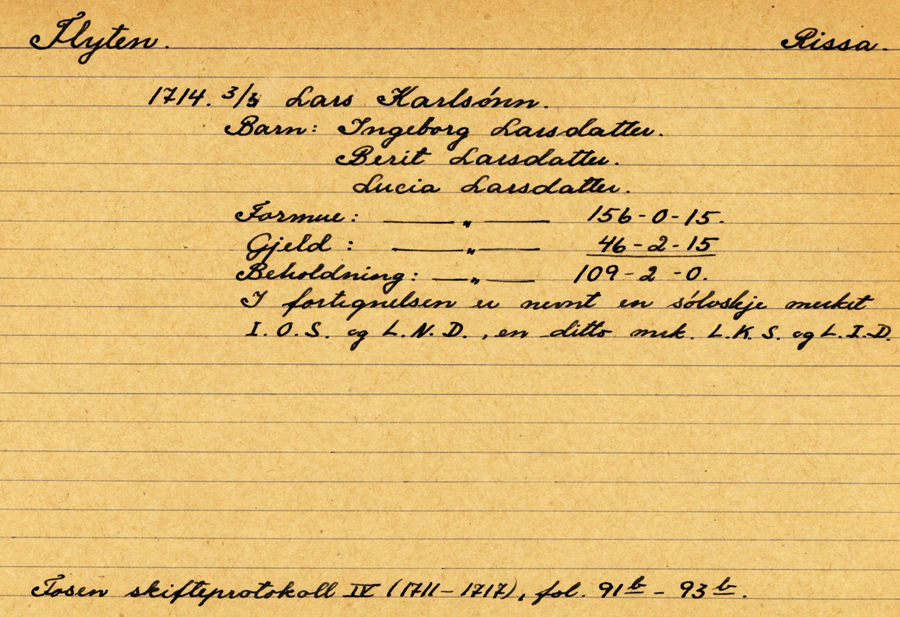 Flyten. Rissa.
1714. 3/3 Lars Karlsønn.
Barn: Ingeborg Larsdatter.
Berit Larsdatter.
Lucia Larsdatter.
Formue: — „ — 156-0-15.
Gjeld: — „ — 46-2-15
Beholdning: — „ — 109-2-0.
I fortegnelsen er nevnt en sølvskje merket
I.O.S. og L.N.D., en ditto mrk. L.K.S. og L.I.D.
Fosen skifteprotokoll IV (1711-1717), fol. 91b - 93b.